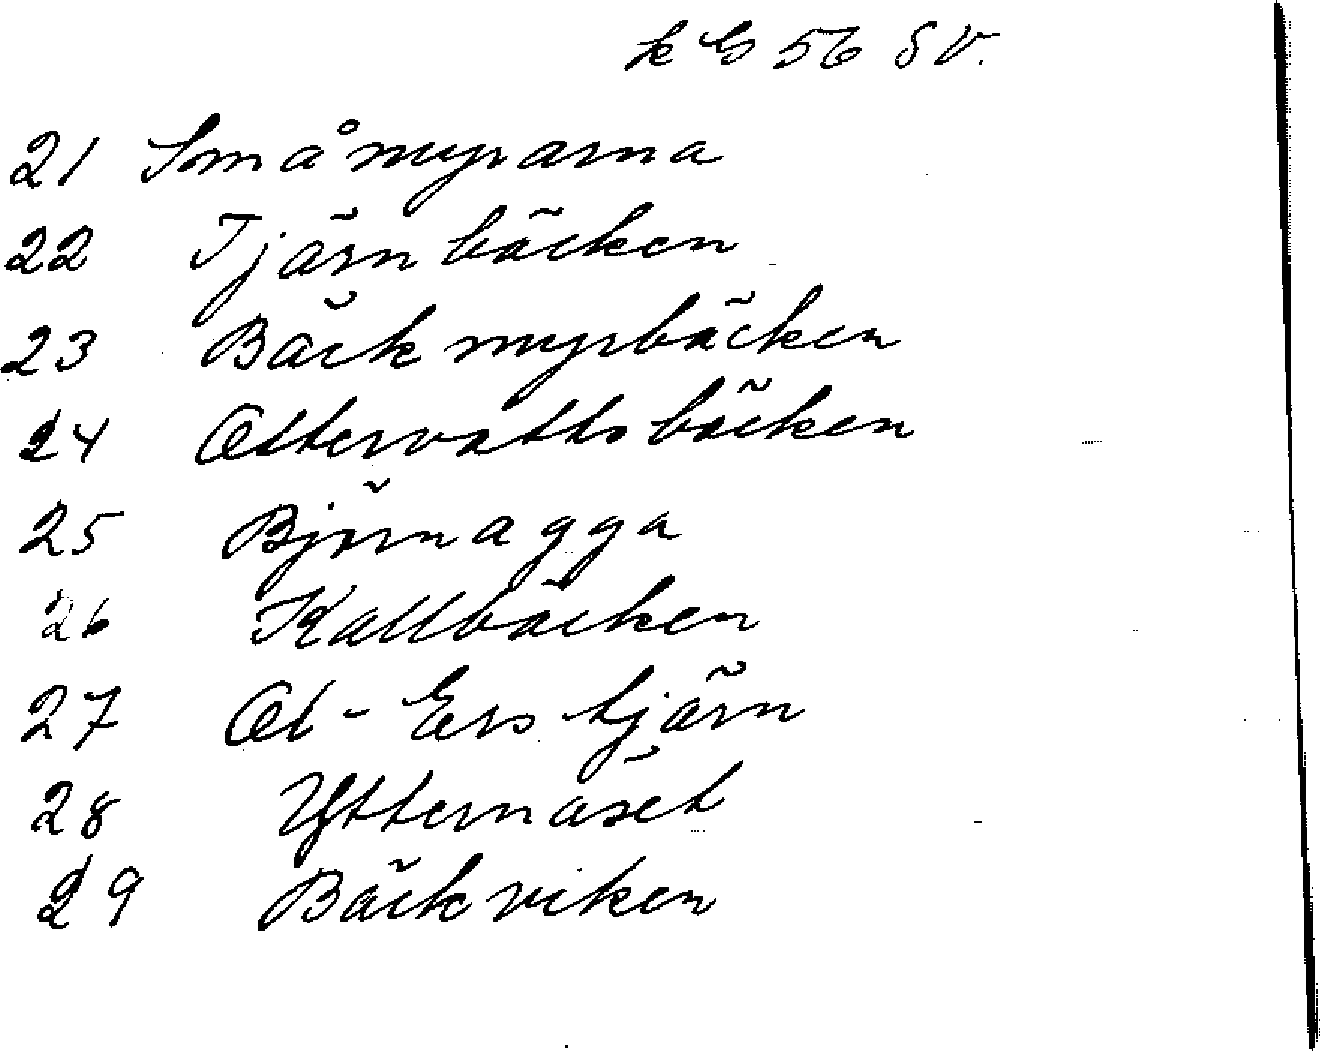 k G 56 SV.
21 Småmyrarna
22 Tjärnbäcken
23 Bäckmyrbäcken
24 bäcken
25 Björnagga
26 Kallbäcken
27 Ol-Ers tjärn
28 Ytternäset
29 Bäckviken